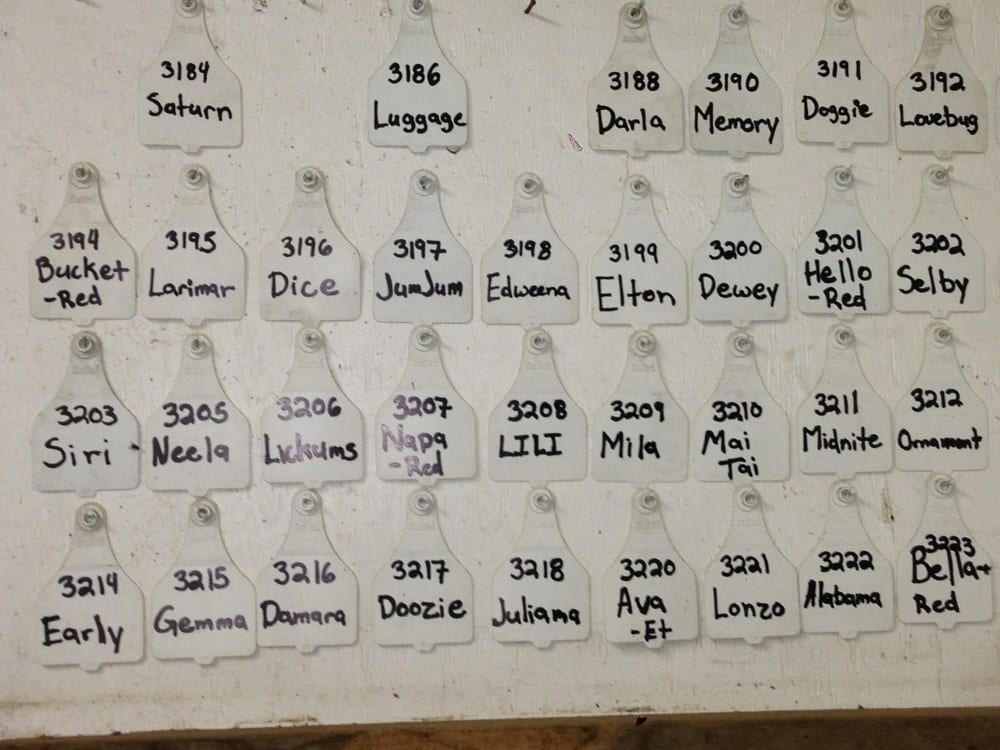 3184
Saturn
3186
Luggage
3188
Darla
3190
Memory
3191
Doggie
3192
Lovebug
3194
Bucket
-Red
3195
Larimar
3196
Dice
3197
JumJum
3198
Edweena
3199
Elton
3200
Dewey
3201
Hello
-Red
3202
Selby
3203
Siri
3205
Neela
3206
Lickums
3207
Napa
-Red
3208
LILI
3209
Mila
3210
Mai
Tai
3211
Midnite
3212
Ornament
3214
Early
3215
Gemma
3216
Damara
3217
Doozie
3218
Juliana
3220
Ava
-Et
3221
Lonzo
3222
Alabama
3223
Bella-
Red